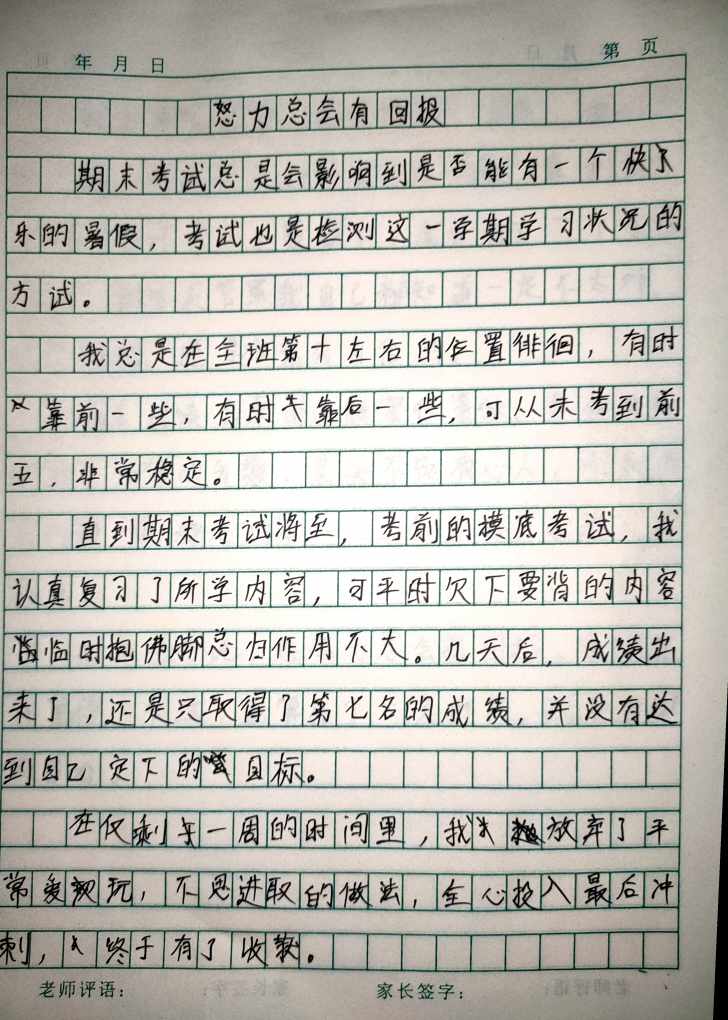 年 月 日 第 页
怒力总会有回报
期末考试总是会影响到是否能有一个快了
乐的暑假，考试也是检测这一学期学习状况的
方试。
我总是在全班第十左右的位置徘徊，有时
靠前一些，有时靠后一些，可从未考到前
五，非常稳定。
直到期末考试将至，考前的摸底考试，我
认真复习了所学内容，可平时欠下要背的内容
临时抱佛脚总归作用不大。几天后，成绩出
来了，还是只取得了第七名的成绩，并没有达
到自己定下的目标。
在仅剩一周的时间里，我放弃了平
常爱玩，不思进取的做法，全心投入最后冲
刺，终于有了收获。
老师评语： 家长签字：